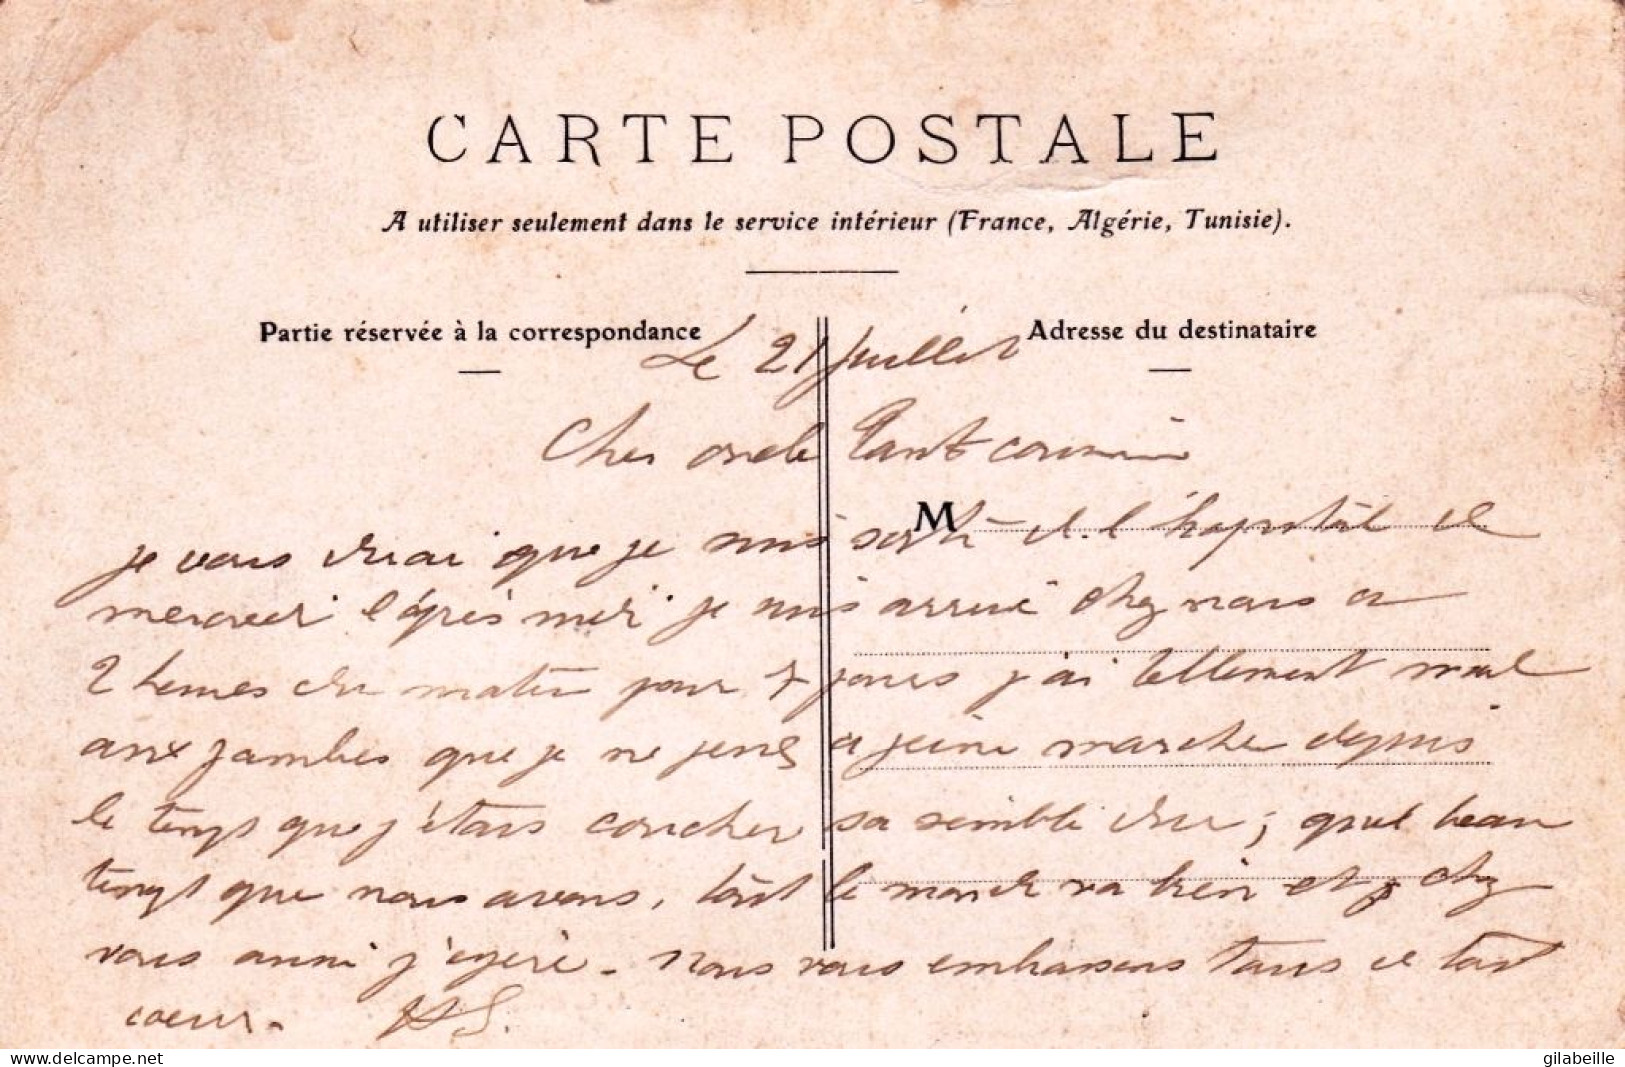 CARTE POSTALE
A utiliser seulement dans le service intérieur (France, Algérie, Tunisie).
Partie réservée à la correspondance
Adresse du destinataire
Le 21 Juillet
Cher oncle Tant cousin
M
je vous dirai que je suis sorti de l'hopital le
mercredi l'après midi je suis arrivé chez nous a
2 heures du matin pour 7 jours j'ai tellement mal
aux jambes que je ne peus a peine marcher depuis
le temps que j'étais coucher sa semble dur; quel beau
temps que nous avons, tout le monde va bien et chez
vous aussi j'espère. Nous vous embrassons tous de tout
coeur.
gilabeille